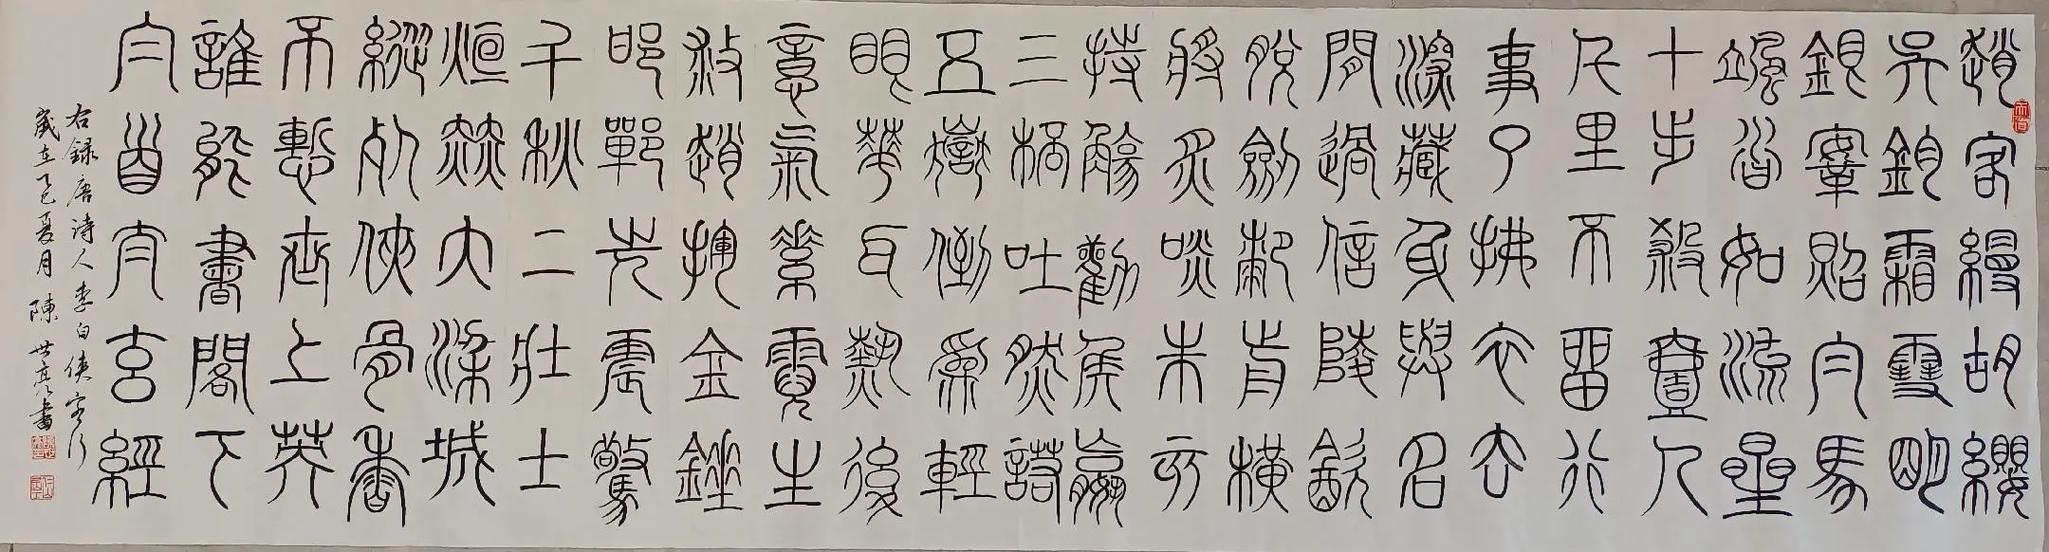 趙客縵胡纓
吳鉤霜雪明
銀鞍照白馬
颯沓如流星
十步殺壹人
千里不留行
事了拂衣去
深藏身與名
閒過信陵飲
脫劍厀前橫
將炙啖朱亥
持觴勸侯嬴
三桮吐然諾
五嶽倒為輕
眼華耳熱後
意氣素霓生
救趙揮金錘
邯鄲先震驚
千秋二壯士
烜赫大梁城
縱死俠骨香
不慙世上英
誰能書閣下
白首太玄經
右録唐诗人李白侠客行
歲在乙巳夏月 陳世亮書